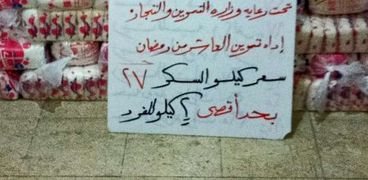 تحت رعاية وزارة التموين والتجارة
إدارة تموين العاشر من رمضان
سعر كيلو السكر ٢٧
بحد أقصى ٢ كيلو للفرد